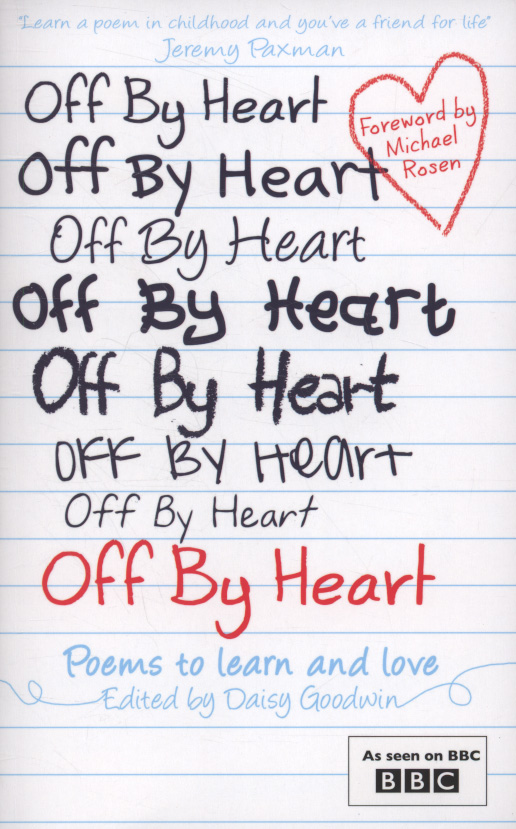 "Learn a poem in childhood and you've a friend for life"
Jeremy Paxman
Off By Heart
Foreword by
Michael
Rosen
Off By Heart
Off By Heart
Off By Heart
Off By Heart
Off By Heart
Off By Heart
Off By Heart
Poems to learn and love
Edited by Daisy Goodwin
As seen on BBC
BBC